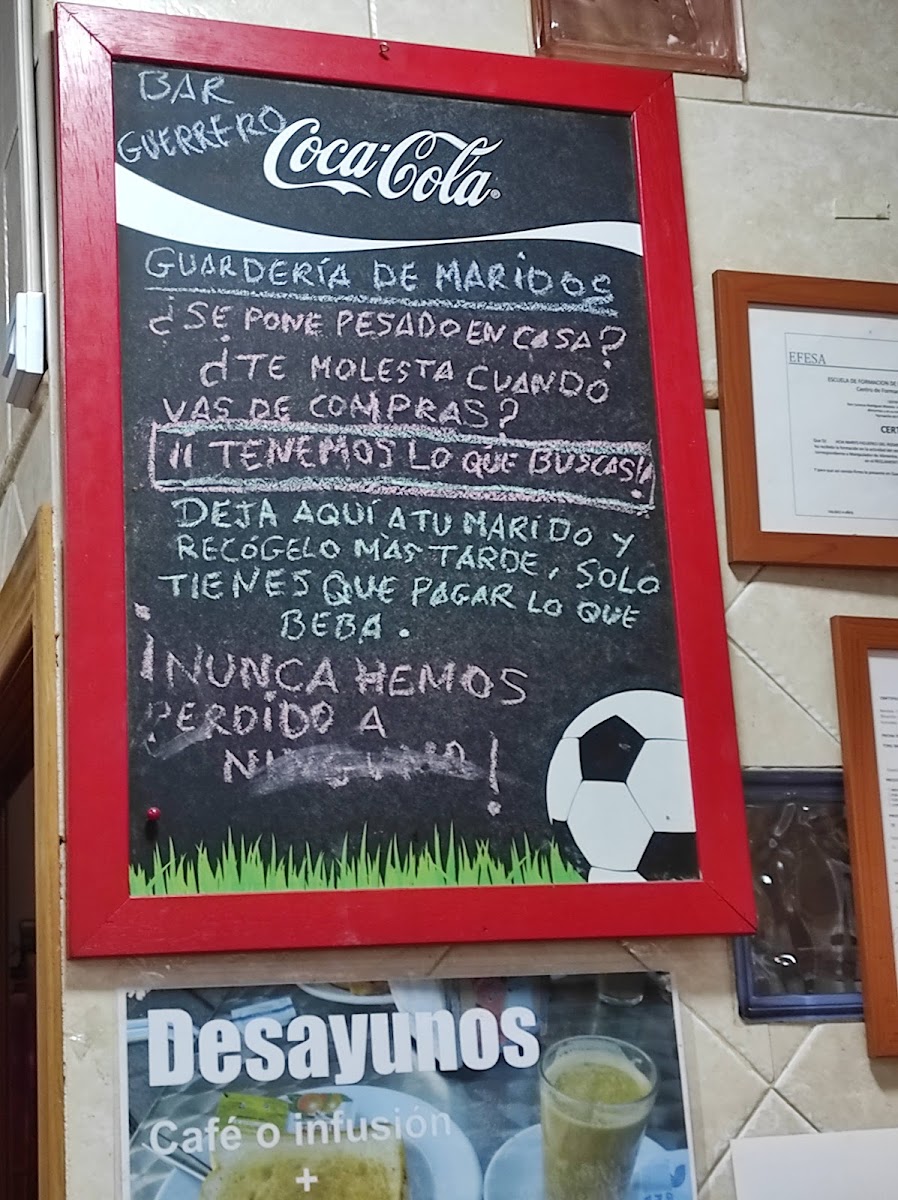 BAR
GUERRERO
Coca-Cola®
GUARDERÍA DE MARIDOS
¿SE PONE PESADO EN CASA?
¿TE MOLESTA CUANDO
VAS DE COMPRAS?
¡¡TENEMOS LO QUE BUSCAS!!
DEJA AQUÍ A TU MARIDO Y
RECÓGELO MÀS TARDE, SOLO
TIENES QUE PAGAR LO QUE
BEBA.
¡NUNCA HEMOS
PERDIDO A
NINGUNO!
EFESA
Desayunos
Café o infusión
+